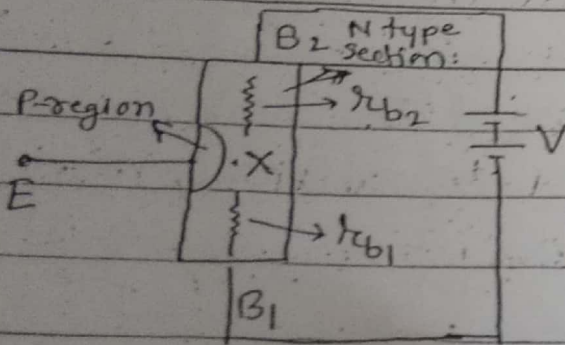 B2 N type
section:
P-region
rb2
.X
V
E
rb1
B1